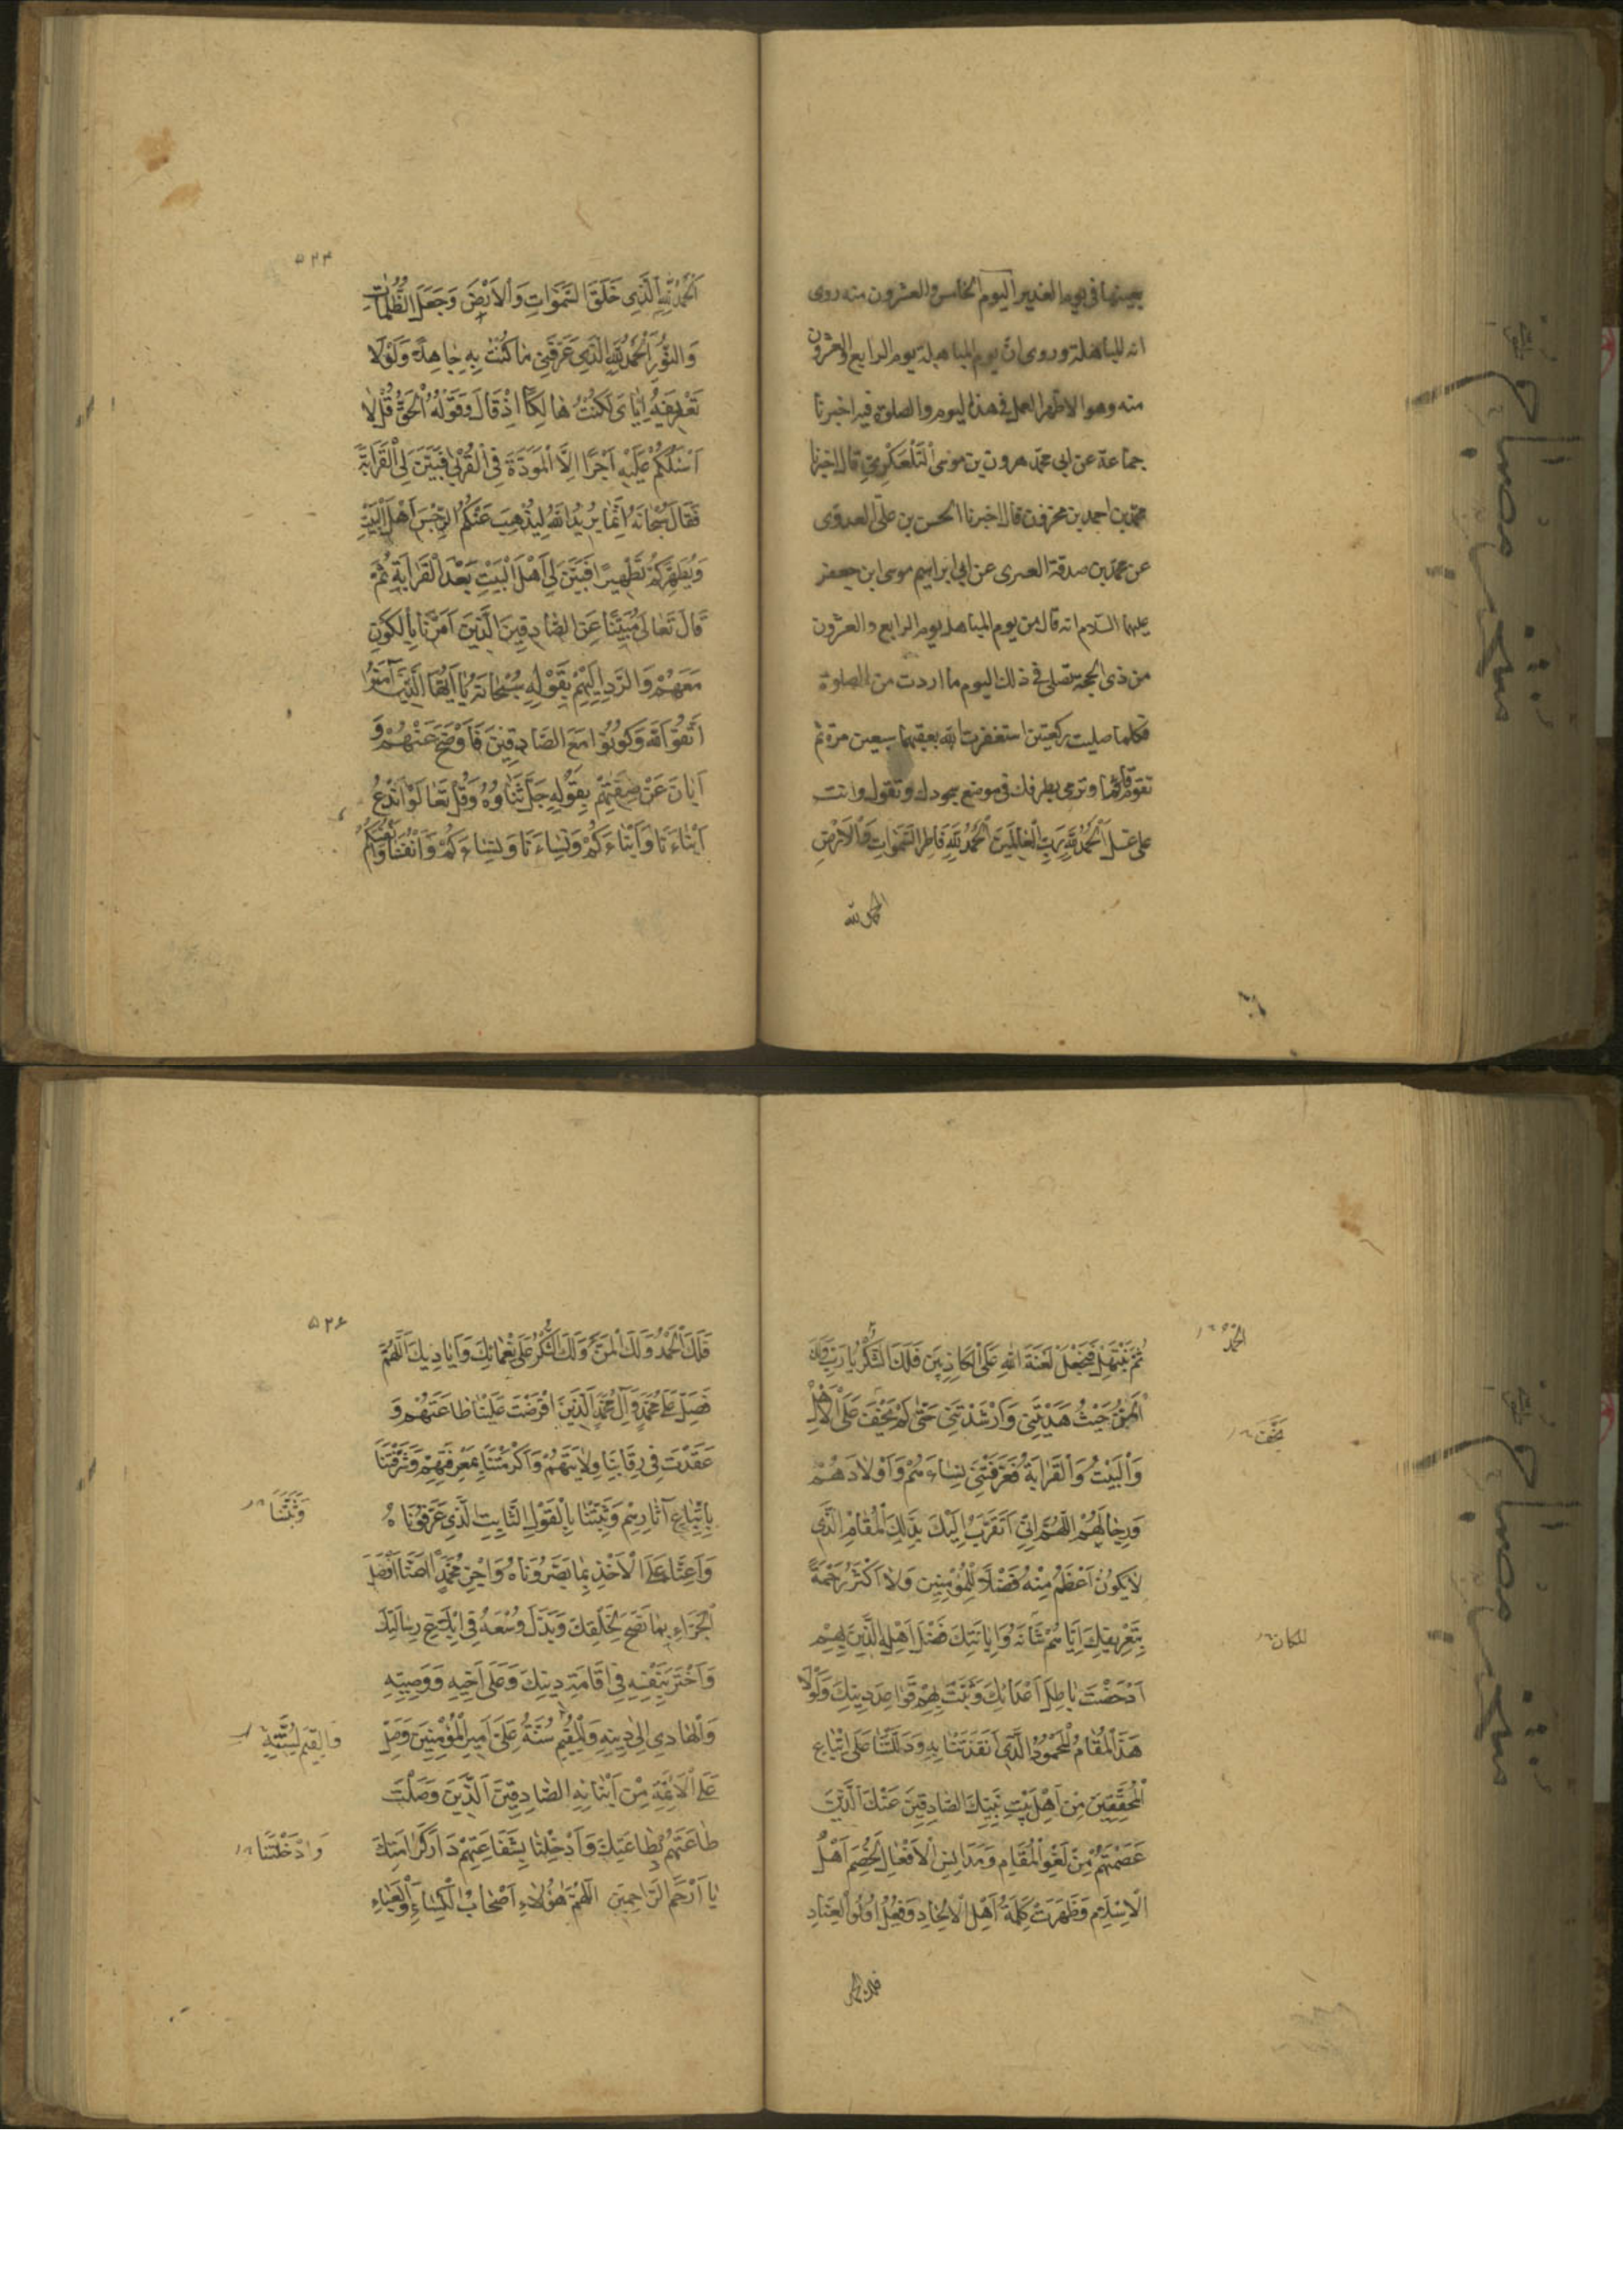 بعينها في يوم الغدير اليوم الخامس والعشرون منه روى
انه للمباهلة وروى ان يوم المباهلة يوم الرابع والعشرون
منه وهو الاظهر العمل في هذا اليوم والصلوة فيه اخبرنا
جماعة عن ابى محمد هرون بن موسى التلعكبرى قال اخبرنا
محمد بن احمد بن مخزوم قال اخبرنا الحسن بن على العدوى
عن محمد بن صدقة العنبرى عن ابى ابراهيم موسى ابن جعفر
عليهما السلام انه قال من يوم المباهلة يوم الرابع والعشرون
من ذى الحجة تصلى في ذلك اليوم ما اردت من الصلوة
فكلما صليت ركعتين استغفرت الله بعقبهما سبعين مرة ثم
تقوم قائما وترمى بطرفك في موضع سجودك وتقول وانت
على غسل اَلْحَمْدُ لِلّهِ رَبِّ الْعالَمينَ اَلْحَمْدُ لِلّهِ فاطِرِ السَّمواتِ وَالْاَرْضِ
الحمد لله
۵۲۴
اَلْحَمْدُ لِلّهِ الَّذى خَلَقَ السَّمَواتِ وَالْاَرْضَ وَجَعَلَ الظُّلُماتِ
وَالنُّورَ اَلْحَمْدُ لِلّهِ الَّذى عَرَّفَنى ما كُنْتُ بِهِ جاهِلًا وَلَوْلا
تَعْريفُهُ اِيّاىَ لَكُنْتُ هالِكًا اِذْ قالَ وَقَوْلُهُ الْحَقُّ قُلْ لا
اَسْئَلُكُمْ عَلَيْهِ اَجْرًا اِلَّا الْمَوَدَّةَ فِى الْقُرْبى فَبَيَّنَ لِىَ الْقَرابَةَ
فَقالَ سُبْحانَهُ اِنَّما يُريدُ اللهُ لِيُذْهِبَ عَنْكُمُ الرِّجْسَ اَهْلَ الْبَيْتِ
وَيُطَهِّرَكُمْ تَطْهيرًا فَبَيَّنَ لى اَهْلَ الْبَيْتِ بَعْدَ الْقَرابَةِ ثُمَّ
قالَ تَعالى مُبَيِّنًا عَنِ الصّادِقينَ الَّذينَ اَمَرَنا بِالْكَوْنِ
مَعَهُمْ وَالرَّدِّ اِلَيْهِمْ بِقَوْلِهِ سُبْحانَهُ يا اَيُّهَا الَّذينَ آمَنُوا
اتَّقُوا اللهَ وَكُونُوا مَعَ الصّادِقينَ فَاَوْضَحَ عَنْهُمْ وَ
اَبانَ عَنْ صِفَتِهِمْ بِقَوْلِهِ جَلَّ ثَناؤُهُ وَقُلْ تَعالَوْا نَدْعُ
اَبْناءَنا وَاَبْناءَكُمْ وَنِساءَنا وَنِساءَكُمْ وَاَنْفُسَنا وَاَنْفُسَكُمْ
ثُمَّ نَبْتَهِلْ فَنَجْعَلْ لَعْنَةَ اللهِ عَلَى الْكاذِبينَ فَلَكَ الشُّكْرُ يا رَبِّ وَلَكَ
الْمَنُّ حَيْثُ هَدَيْتَنى وَاَرْشَدْتَنى حَتّى لَمْ يَخْفَ عَلَىَّ الْاَهْلُ
وَالْبَيْتُ وَالْقَرابَةُ فَعَرَّفْتَنى نِساءَهُمْ وَاَوْلادَهُمْ
وَرِجالَهُمْ اللّهُمَّ اِنّى اَتَقَرَّبُ اِلَيْكَ بِذلِكَ الْمَقامِ الَّذى
لا يَكُونُ اَعْظَمُ مِنْهُ فَضْلًا لِلْمُؤْمِنينَ وَلا اَكْثَرُ رَحْمَةً
بِتَعْريفِكَ اِيّاهُمْ شَانَهُ وَاِبانَتِكَ فَضْلَ اَهْلِهِ الَّذينَ بِهِمْ
اَدْحَضْتَ باطِلَ اَعْدائِكَ وَثَبَّتَّ بِهِمْ قَواعِدَ دينِكَ وَلَوْلا
هذَا الْمَقامُ الْمَحْمُودُ الَّذى اَنْقَذْتَنا بِهِ وَدَلَلْتَنا عَلَى اتِّباعِ
الْمُحِقّينَ مِنْ اَهْلِ بَيْتِ نَبِيِّكَ الصّادِقينَ عَنْكَ الَّذينَ
عَصَمْتَهُمْ مِنْ لَغْوِ الْمَقالِ وَمَدانِسِ الْاَفْعالِ لَخُصِمَ اَهْلُ
الْاِسْلامِ وَظَهَرَتْ كَلِمَةُ اَهْلِ الْاِلْحادِ وَفِعْلُ اُولُوا الْعِنادِ
الحمد
يخف
للمكان
فلك الحمد
۵۲۶
فَلَكَ الْحَمْدُ وَلَكَ الْمَنُّ وَلَكَ الشُّكْرُ عَلى نَعْمائِكَ وَاَياديكَ اَللّهُمَّ
فَصَلِّ عَلى مُحَمَّدٍ وَآلِ مُحَمَّدٍ الَّذينَ افْتَرَضْتَ عَلَيْنا طاعَتَهُمْ وَ
عَقَدْتَ فى رِقابِنا وِلايَتَهُمْ وَاَكْرَمْتَنا بِمَعْرِفَتِهِمْ وَشَرَّفْتَنا
بِاتِّباعِ آثارِهِمْ وَثَبَّتْنا بِالْقَوْلِ الثّابِتِ الَّذى عَرَّفُوناهُ
وَاَعِنّا عَلَى الْاَخْذِ بِما بَصَّرُوناهُ وَاجْزِ مُحَمَّدًا عَنّا اَفْضَلَ
الْجَزاءِ بِما نَصَحَ لِخَلْقِكَ وَبَذَلَ وُسْعَهُ فى اِبْلاغِ رِسالَتِكَ
وَاَخْطَرَ بِنَفْسِهِ فى اِقامَةِ دينِكَ وَعَلى اَخيهِ وَوَصِيِّهِ
وَالْهادى اِلى دينِهِ وَالْمُقيمِ سُنَّتَهُ عَلِىٍّ اَميرِ الْمُؤْمِنينَ وَصَلِّ
عَلَى الْاَئِمَّةِ مِنْ اَبْنائِهِ الصّادِقينَ اَلَّذينَ وَصَلْتَ
طاعَتَهُمْ بِطاعَتِكَ وَاَدْخِلْنا بِشَفاعَتِهِمْ دارَ كَرامَتِكَ
يا اَرْحَمَ الرّاحِمينَ اللّهُمَّ هؤُلاءِ اَصْحابُ الْكِساءِ وَالْعَباءِ
وَثَبَّتَّنا
وَالقَيِّمِ لِسُنَّتِهِ
وَادْخَلْتَنا